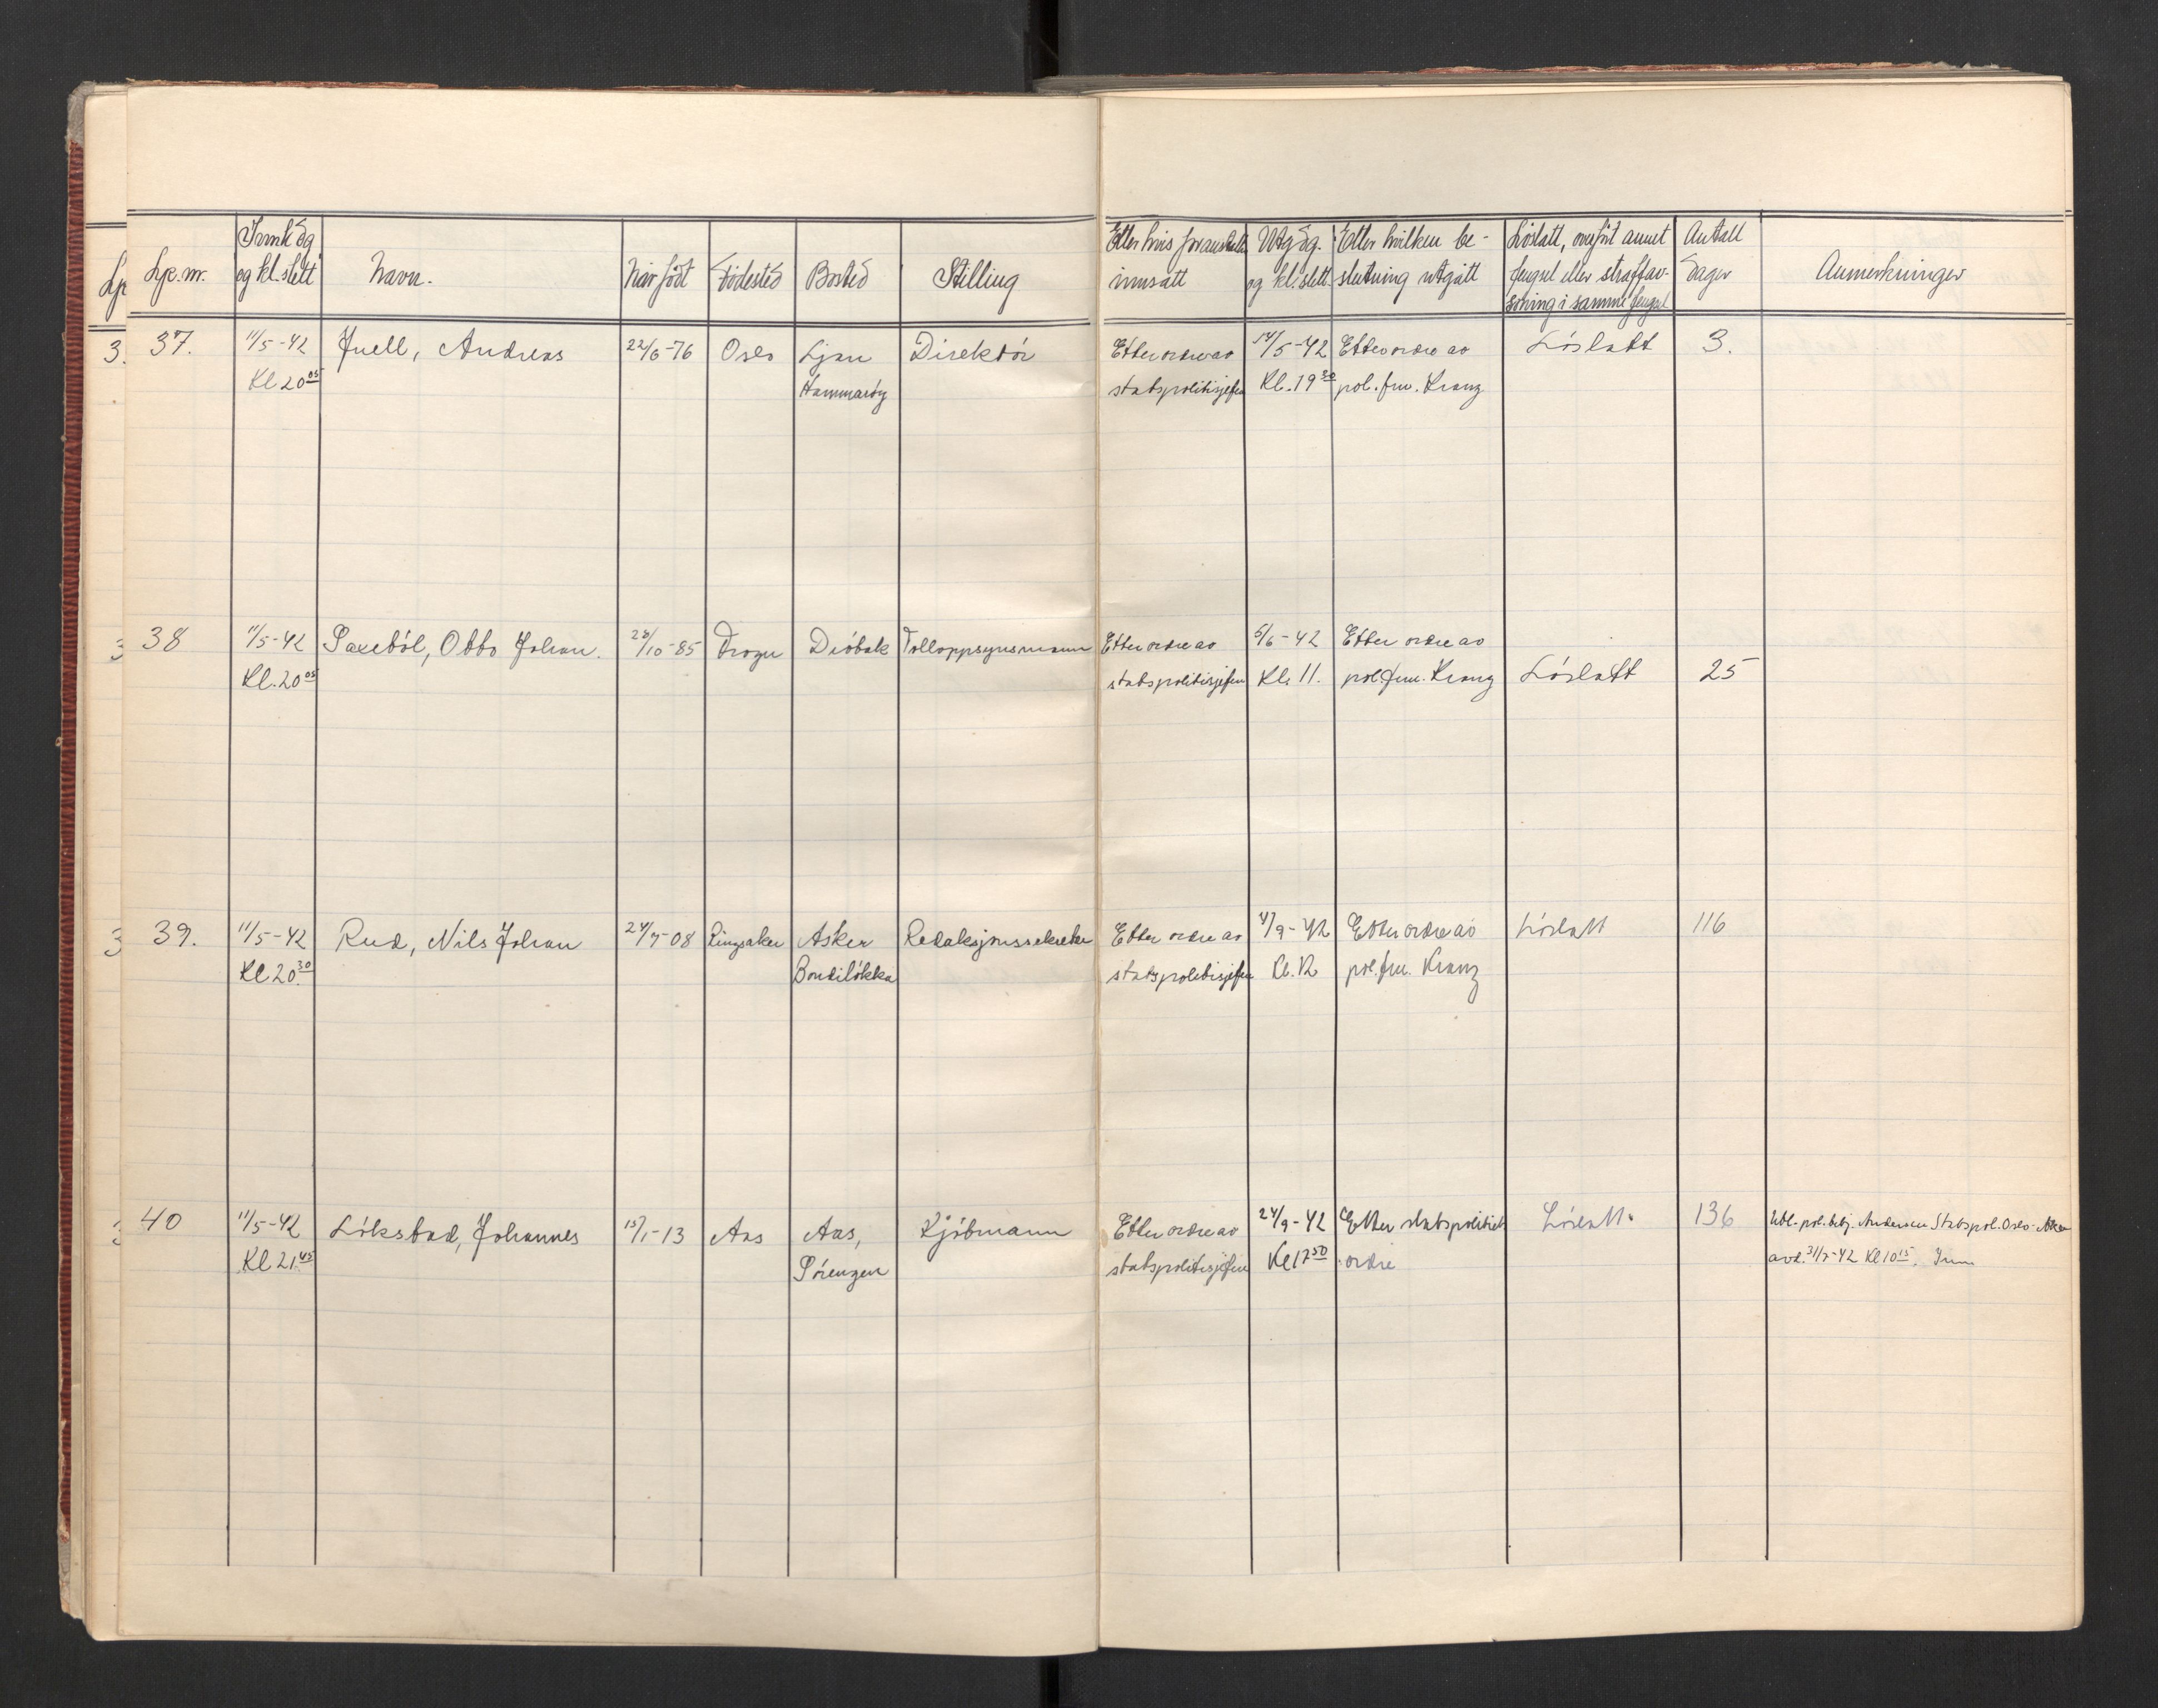 Lp. nr.
Innk. dg. og kl. slett
Navn.
Når født
Födested
Bosted
Stilling
Etter hvis foranstalt. innsatt
Utg. dg. og kl. slett.
Etter hvilken be-
slutning utgått
Löslatt, overfört annet
fengsel eller straffav-
soning i samme fengsel
Antall dager
Anmerkninger
37. 11/5-42 Juell, Andreas 22/6-76 Oslo Ljan Direktör Etter ordre av 14/5-42 Etter ordre av Löslatt 3.
Kl 20 05 Hammaröy statspolitisjefen Kl. 19 30 pol. fm. Kranz
38 11/5-42 Saxeböl, Otto Johan. 28/10-85 Frogn Dröbak Tolloppsynsmann Etter ordre av 5/6-42 Etter ordre av
Kl. 20 05 statspolitisjefen Kl. 11. pol. fm. Kranz Löslatt 25
39. 11/5-42 Rud, Nils Johan 24/7-08 Ringsaker Asker Redaksjonssekretær Etter ordre av 4/9-42 Etter ordre av Löslatt 116
Kl 20 30 Bondilökka statspolitisjefen Kl. 12 pol. fm. Kranz
40 11/5-42 Löksbad, Johannes 15/1-13 Aas Aas, Kjöbmann Etter ordre av 24/9-42 Etter statspolitiets Löslatt. 136 Utl. pol. betj. Andersen Statspol. Oslo-Aker
Kl 21 45 Sörengen statspolitisjefen Kl 17 50 ordre avd. 31/7-42 Kl 10 15.